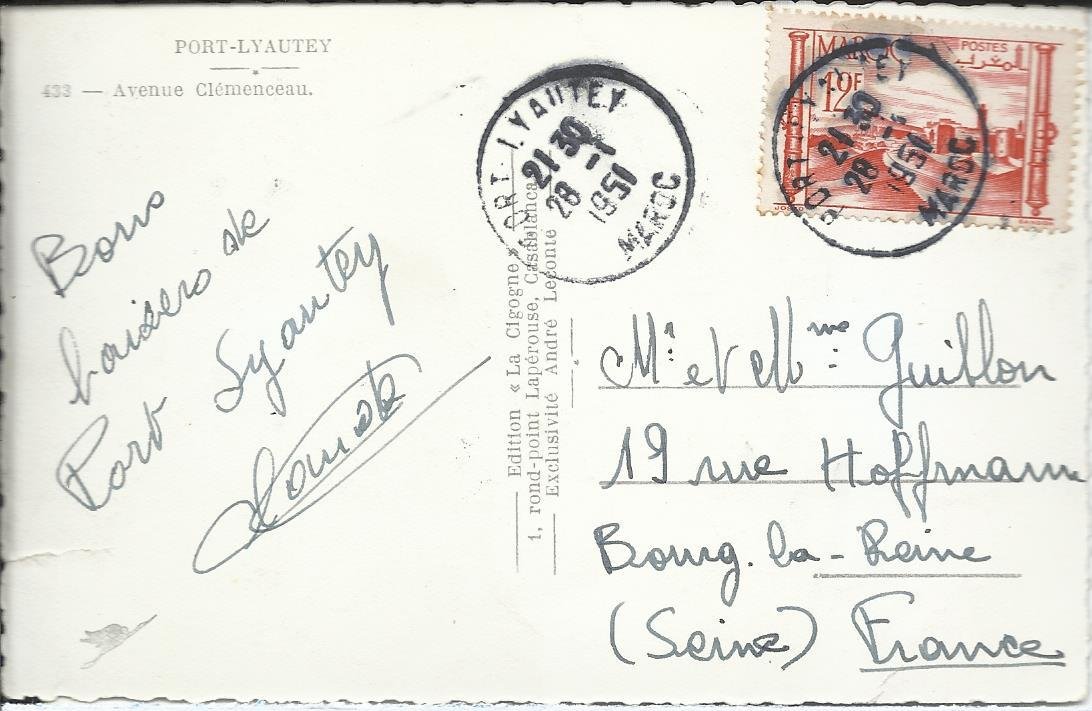 PORT-LYAUTEY
433 — Avenue Clémenceau.
Bons
baisers de
Port Lyautey
Edition « La Cigogne »
1, rond-point Lapérouse, Casablanca
Exclusivité André Leconte
PORT-LYAUTEY
21 30
28 -1
1951
MAROC
MAROC
POSTES
المغرب
12F
PORT-LYAUTEY
21 30
28 -1
1951
MAROC
Mr et Mme Guillon
19 rue Hoffmann
Bourg.la-Reine
(Seine) France